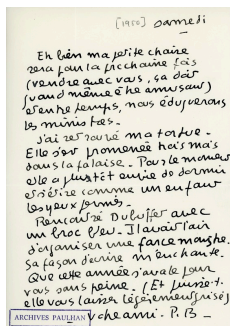 [1950] samedi
Eh bien ma petite chaire
sera pour la prochaine fois
(vendre avec vous, ça doit
quand même être amusant)
entre temps, nous éduquerons
les ministres.
J'ai retrouvé ma tortue.
Elle s'est promenée trois mois
dans la falaise. Pour le moment
elle a plutôt envie de dormir
et s'étire comme un enfant
les yeux fermés.
Rencontré Dubuffet avec
un broc bleu. Il avait l'air
d'organiser une farce
sa façon d'écrire m'enchante.
Que cette année s'avale pour
vous sans peine. (Et puisse-t-
elle vous laisser légèrement grisé)
cher ami. P. B
ARCHIVES PAULHAN